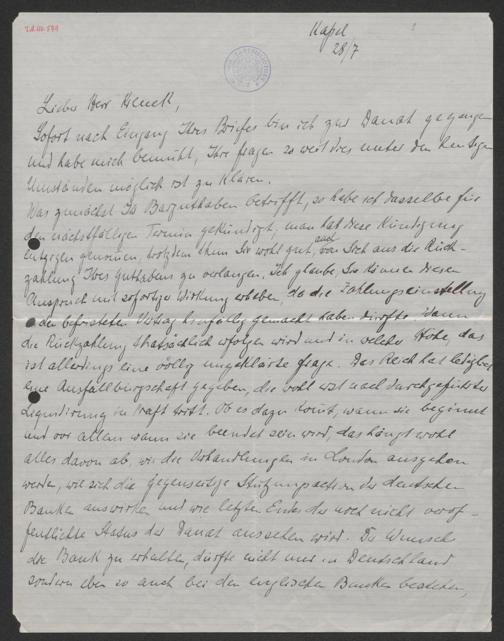 Kassel
28/7
Lieber Herr
Sofort nach Eingang Ihres Briefes bin ich zur Danat gegangen
und habe mich bemüht, Ihre Fragen so weit dies unter den heutigen
Umständen möglich ist zu klären.
Was zunächst Ihr Barguthaben betrifft, so habe ich dasselbe für
den nächstfälligen Termin gekündigt, man hat diese Kündigung
entgegen genommen, trotzdem Sie wohl gut, auch von Sich aus die Rück-
zahlung Ihres Guthabens zu verlangen. Ich glaube Sie können diesen
Anspruch mit sofortiger Wirkung erheben, da die Zahlungseinstellung
den befristeten Vertrag hinfällig gemacht haben dürfte. Wann
die Rückzahlung thatsächlich erfolgen wird und in welcher Höhe, das
ist allerdings eine völlig ungeklärte Frage. Das Reich hat lediglich
eine Ausfallbürgschaft gegeben, die wohl erst nach durchgeführter
Liquidierung in Kraft tritt. Ob es dazu kommt, wann sie beginnt
und vor allem wann sie beendet sein wird, das hängt wohl
alles davon ab, wie die Verhandlungen in London ausgehen
werden, wie sich die gegenseitige Stützungsaction der deutschen
Banken auswirken und wie letzten Endes der noch nicht veröf-
fentlichte Status der Danat aussehen wird. Der Wunsch
die Bank zu erhalten, dürfte nicht nur in Deutschland
sondern eben so auch bei den englischen Banken bestehen,